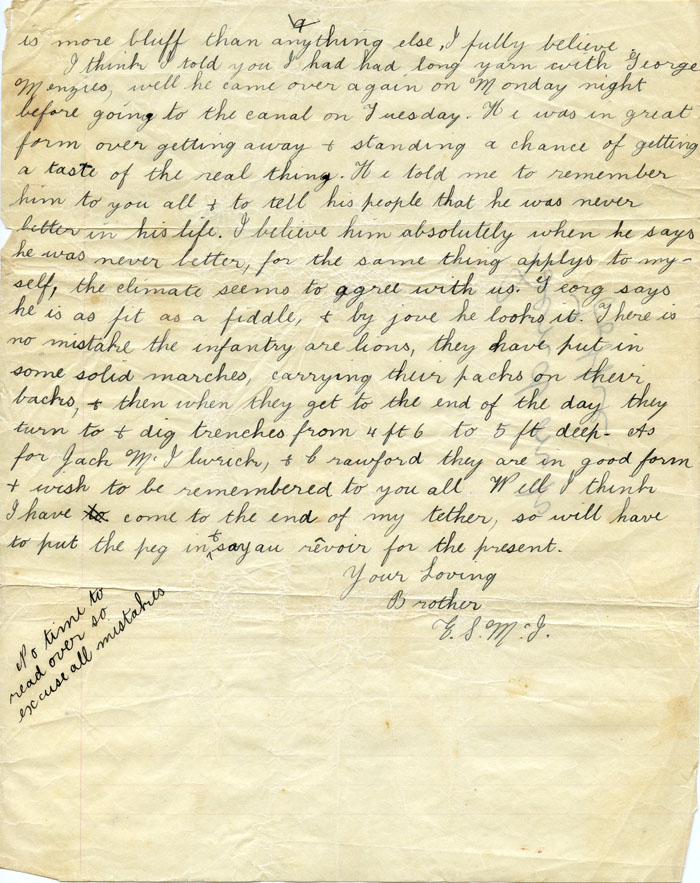 is more bluff than anything else, I fully believe.
I think I told you I had had ^a long yarn with George
Menzies, well he came over again on Monday night
before going to the canal on Tuesday. He was in great
form over getting away & standing a chance of getting
a taste of the real thing. He told me to remember
him to you all & to tell his people that he was never
better in his life. I believe him absolutely when he says
he was never better, for the same thing applys to my-
self, the climate seems to agree with us. Georg says
he is as fit as a fiddle, & by jove he looks it. There is
no mistake the infantry are lions, they have put in
some solid marches, carrying their packs on their
backs, & then when they get to the end of the day they
turn to & dig trenches from 4 ft 6 to 5 ft deep. As
for Jack McIlwrick, & Crawford they are in good form
& wish to be remembered to you all Well I think
I have to come to the end of my tether, so will have
to put the peg in & say au rêvoir for the present.
Your Loving
Brother
E. S. McI.
No time to
read over so
excuse all mistakes